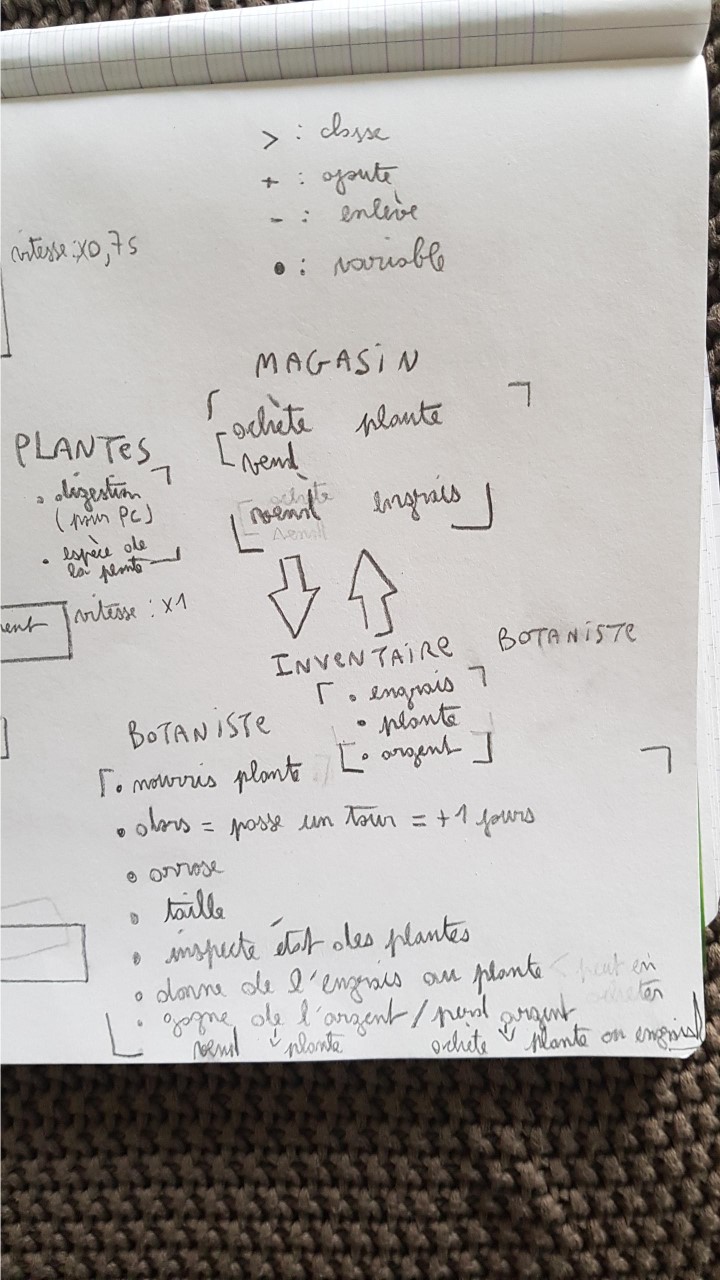 > : classe
+ : ajoute
- : enlève
• : variable
vitesse : x0,75
MAGASIN
achète plante
vend
vend engrais
achète
vend
PLANTES
• digestion
(pour PC)
• espèce de
la plante
vitesse : x1
ment
INVENTAIRE BOTANISTE
• engrais
• plante
• argent
BOTANISTE
• nourris plante
• dors = passe un tour = +1 jours
• arrose
• taille
• inspecte état des plantes
• donne de l'engrais au plante < peut en
acheter
• gagne de l'argent / perd argent
vend plante achète plante ou engrais